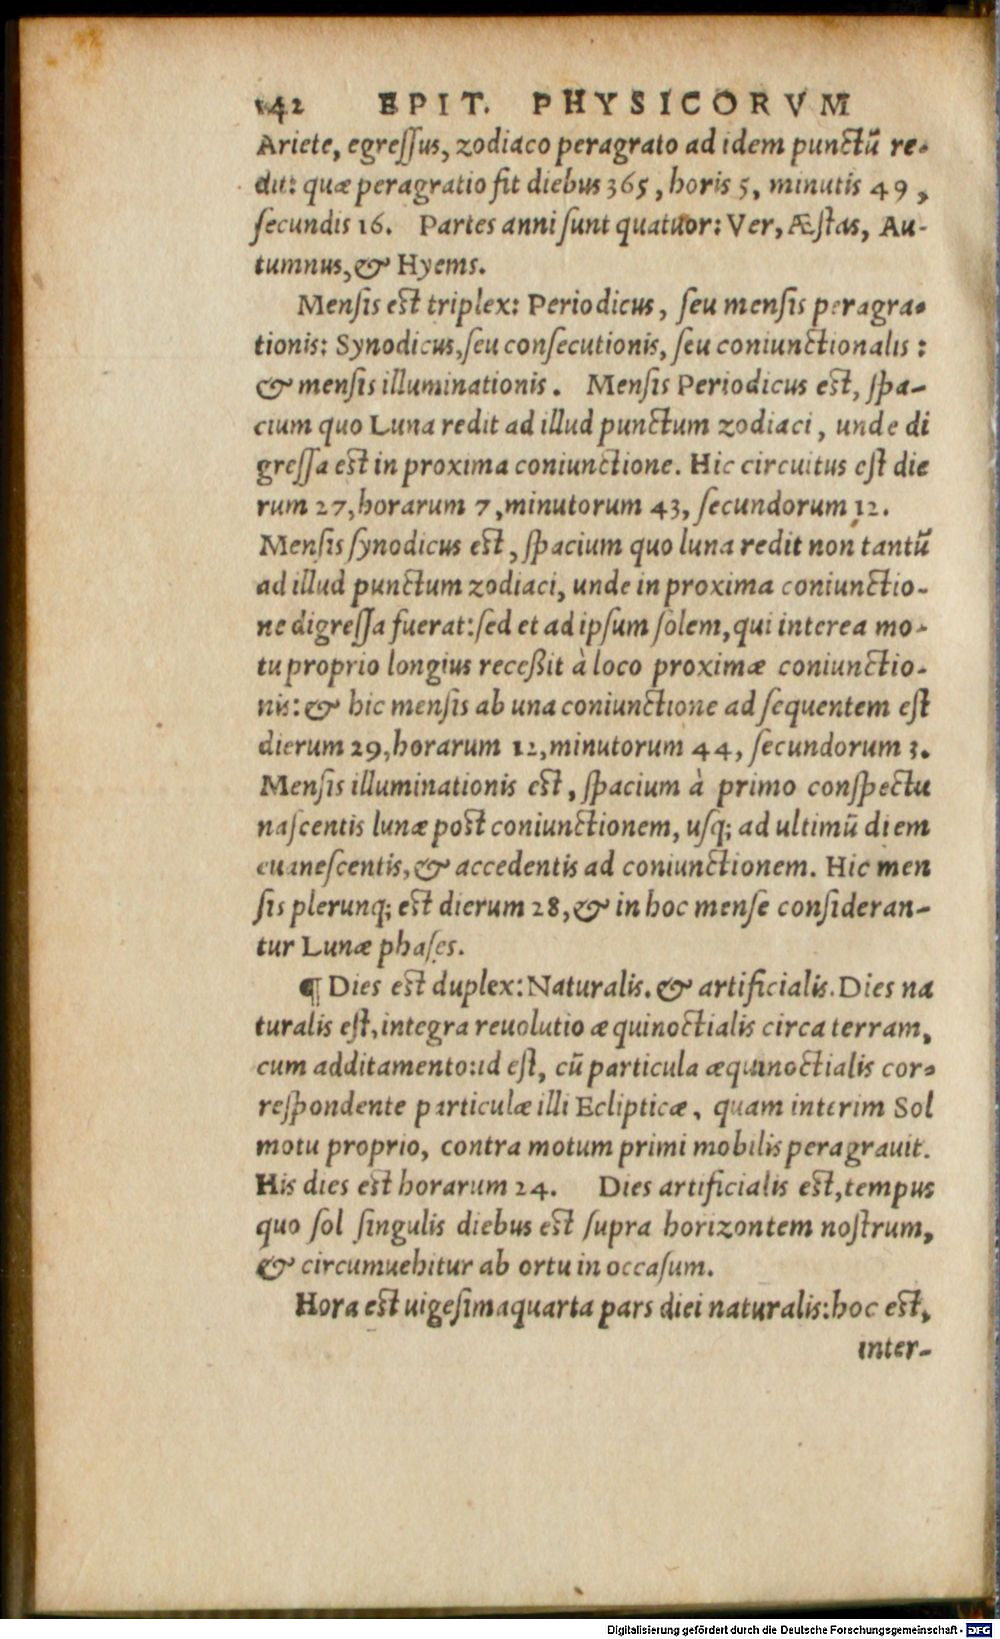 142 EPIT. PHYSICORVM
Ariete, egreſſus, zodiaco peragrato ad idem punctū re-
dit: quæ peragratio fit diebus 365, horis 5, minutis 49,
ſecundis 16. Partes anni ſunt quatuor: Ver, Æſtas, Au-
tumnus, & Hyems.
Menſis eſt triplex: Periodicus, ſeu menſis peragra-
tionis: Synodicus, ſeu conſecutionis, ſeu coniunctionalis:
& menſis illuminationis. Menſis Periodicus eſt, ſpa-
cium quo Luna redit ad illud punctum zodiaci, unde di
greſſa eſt in proxima coniunctione. Hic circuitus eſt die
rum 27, horarum 7, minutorum 43, ſecundorum 12.
Menſis ſynodicus eſt, ſpacium quo luna redit non tantū
ad illud punctum zodiaci, unde in proxima coniunctio-
ne digreſſa fuerat: ſed et ad ipſum ſolem, qui interea mo-
tu proprio longius receßit à loco proximæ coniunctio-
nis: & hic menſis ab una coniunctione ad ſequentem eſt
dierum 29, horarum 12, minutorum 44, ſecundorum 3.
Menſis illuminationis eſt, ſpacium à primo conſpectu
naſcentis lunæ poſt coniunctionem, uſq; ad ultimū diem
euaneſcentis, & accedentis ad coniunctionem. Hic men
ſis plerunq; eſt dierum 28, & in hoc menſe conſideran-
tur Lunæ phaſes.
¶ Dies eſt duplex: Naturalis. & artificialis. Dies na
turalis eſt, integra reuolutio æquinoctialis circa terram,
cum additamento: id eſt, cū particula æquinoctialis cor-
reſpondente particulæ illi Eclipticæ, quam interim Sol
motu proprio, contra motum primi mobilis peragrauit.
His dies eſt horarum 24. Dies artificialis eſt, tempus
quo ſol ſingulis diebus eſt ſupra horizontem noſtrum,
& circumuehitur ab ortu in occaſum.
Hora eſt uigeſimaquarta pars diei naturalis: hoc eſt,
inter-
Digitalisierung gefördert durch die Deutsche Forschungsgemeinschaft - DFG